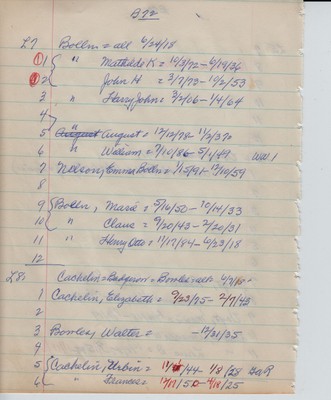 B22
L7 Bollm = all 6/24/18
1 " Mathilde K = 10/3/72 - 6/19/36
2 John H = 3/7/73 - 10/2/53
3 " Harry John = 3/2/06 - 1/4/64
4
5 August " August = 12/12/78 - 11/2/37
6 " William = 7/10/86 - 5/1/49 WW 1
7 Nelson, Emma Bollm = 1/15/91 - 12/10/59
8
9 Bolln, Marie = 5/16/50 - 10/14/33
10 " Claus = 9/20/43 - 2/20/31
11 " Henry Otto = 11/17/84 - 6/23/18
12
L8. Cachelin = = Bowles =
1 Cachelin, Elizabeth = 9/23/75 - 2/7/45
2
3 Bowles, Walter = - 12/31/35
4
5 Cachelin, Urbin = /44 - 1/8/28
6 " Frances = 12/17/50 - 4/18/25